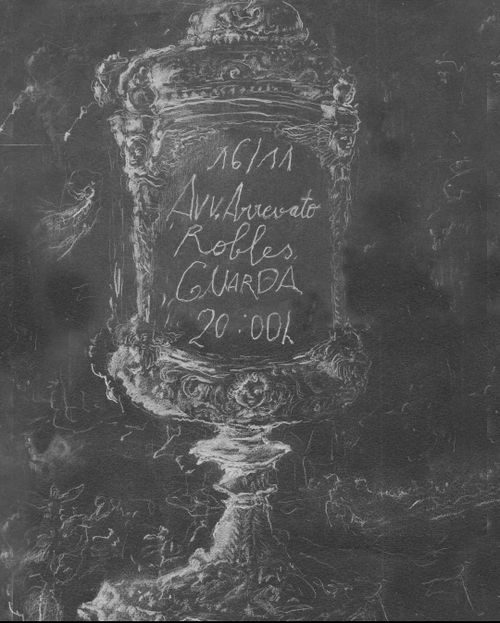 16/11
Avv. Arrevato
Robles
GUARDA
20:00h